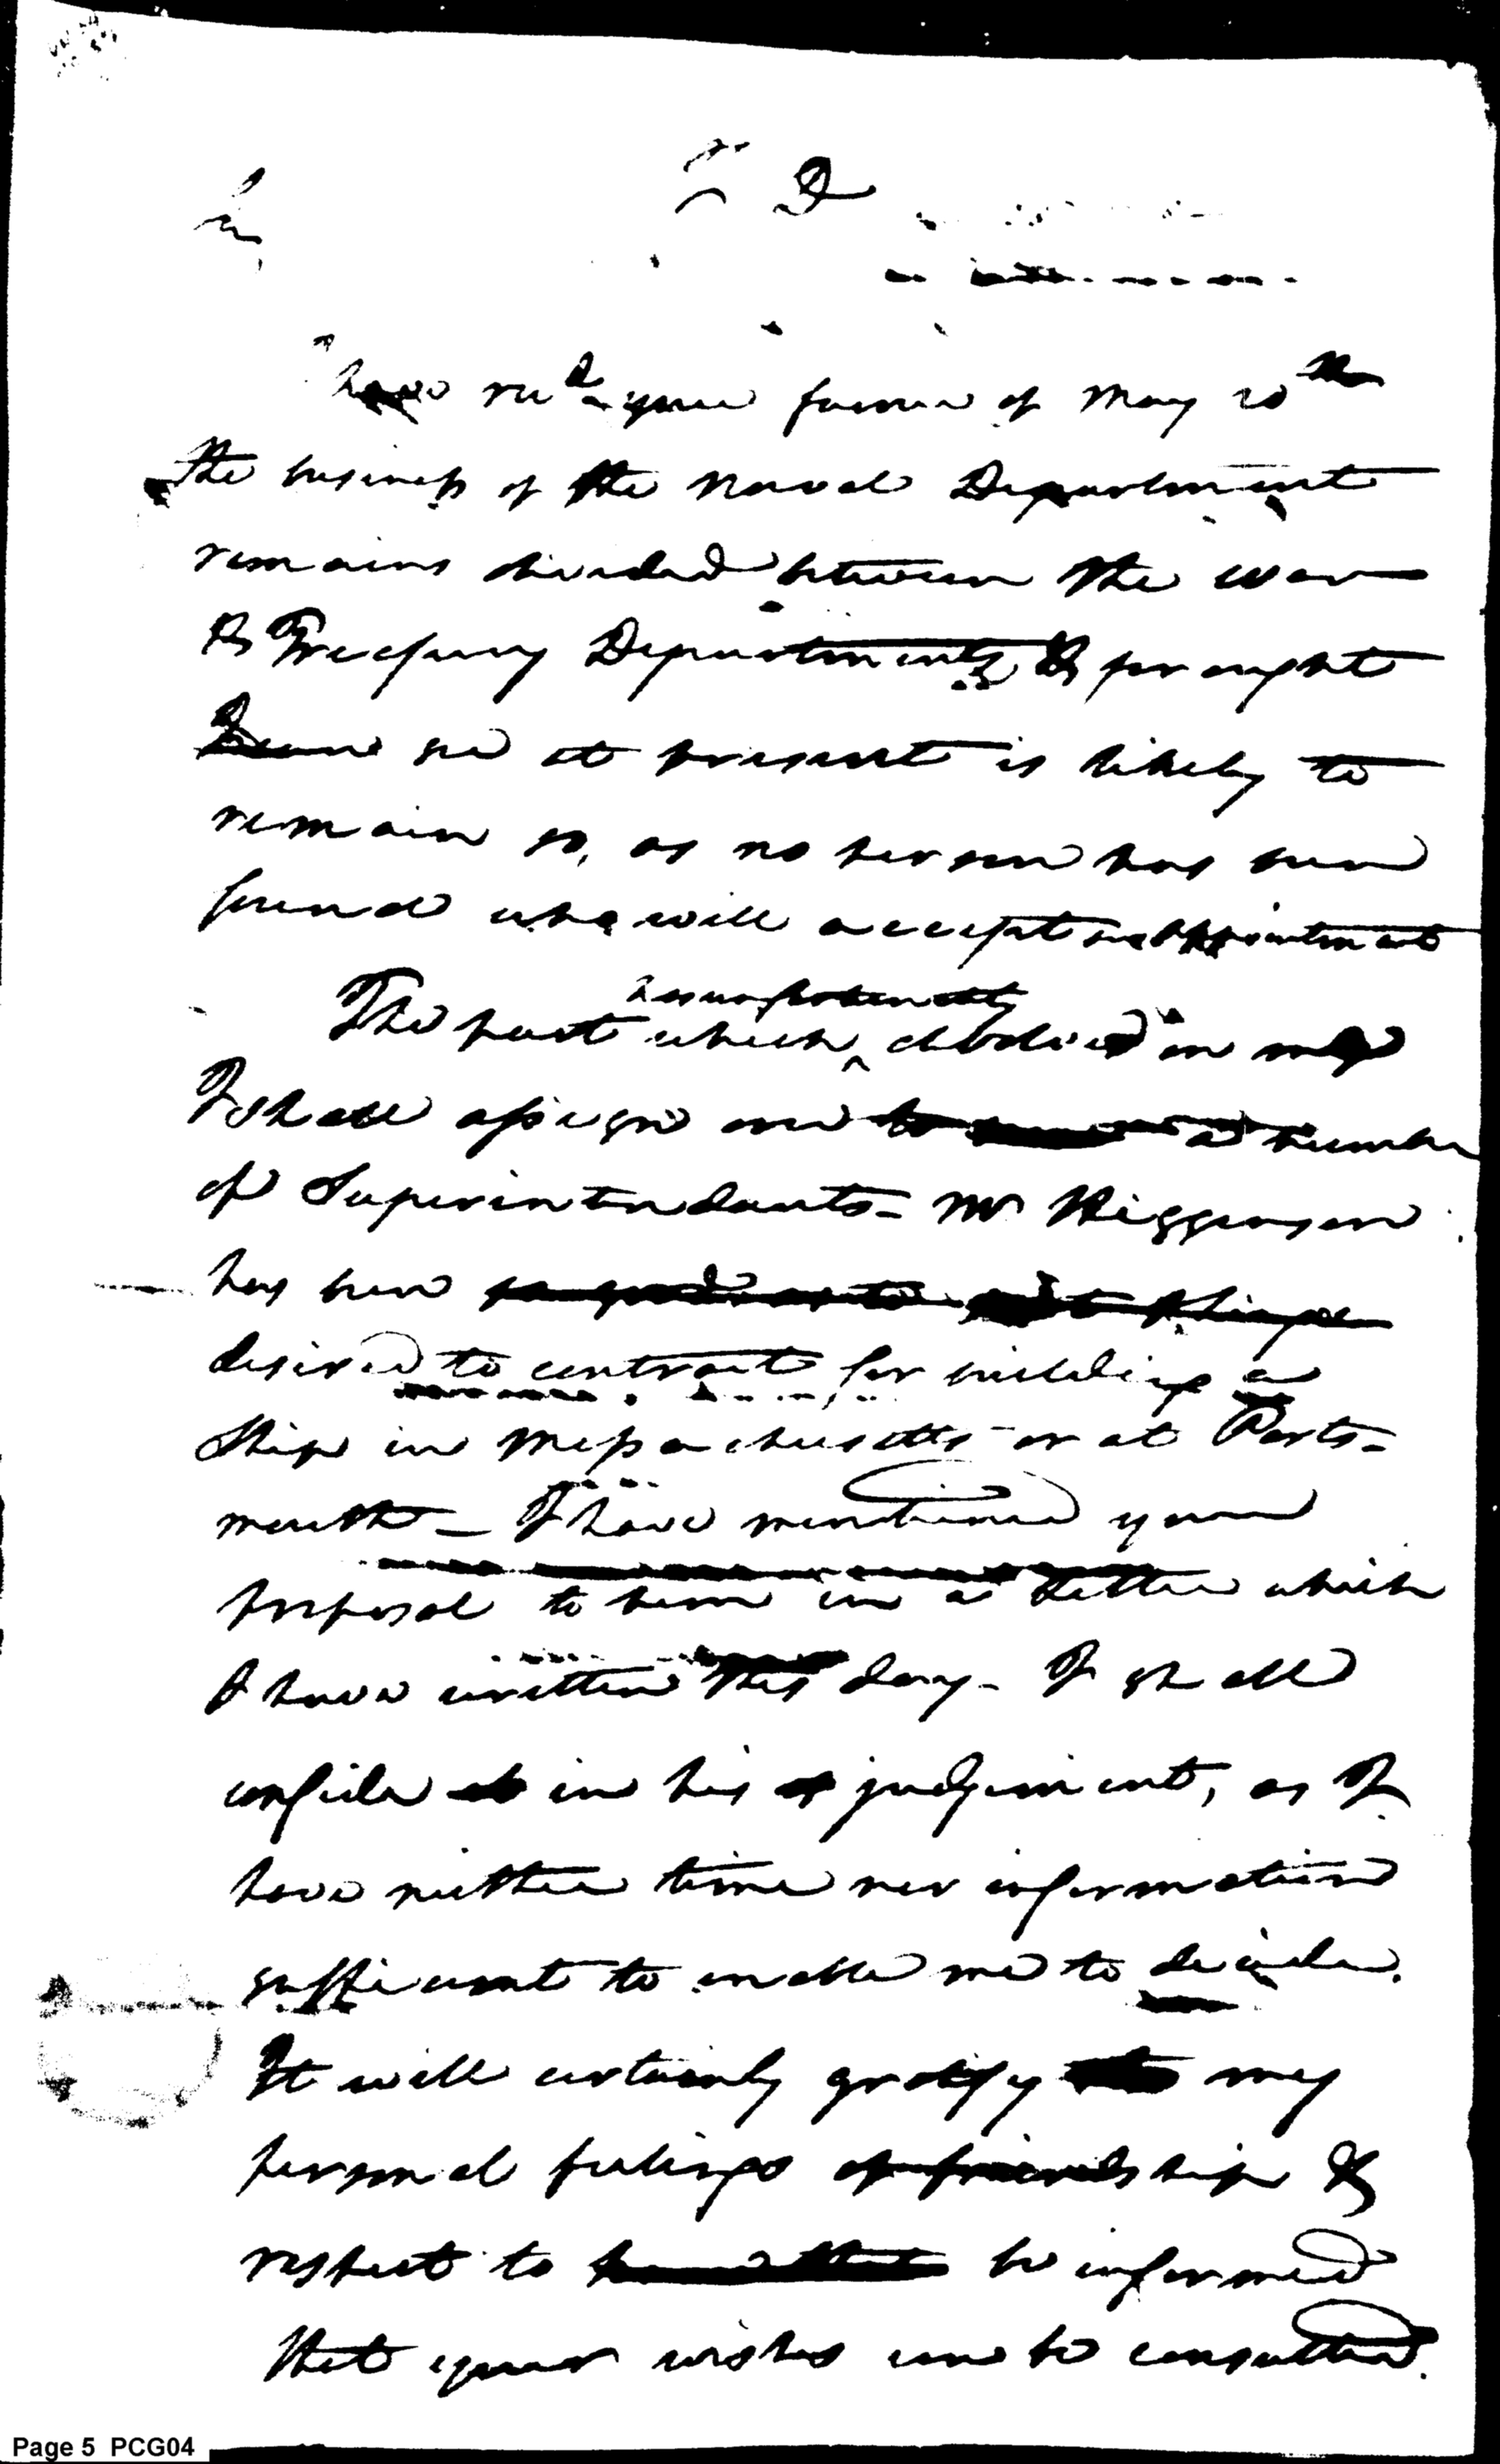 have recd your favour of May 20th
the business of the Naval Department
remains divided between the War
& Treasury Departments & for aught
I can see at present is likely to
remain so, as no person has been
found who will accept an appointment
has unfortunately
The part which devolved on me
I shall assign over to a number
of Superintendants – Mr Higginson
has been
desired to contract for building a
Ship in Massachusetts or at Ports=
mouth – I have mentioned your
proposal to him in a Letter which
I have written this day – I shall
confide in his judgement, as I
have neither time nor information
sufficient to enable me to decide.
It will certainly gratify my
personal feelings of friendship &
respect to be informed
that your wishes can be consulted.
Page 5 PCG04